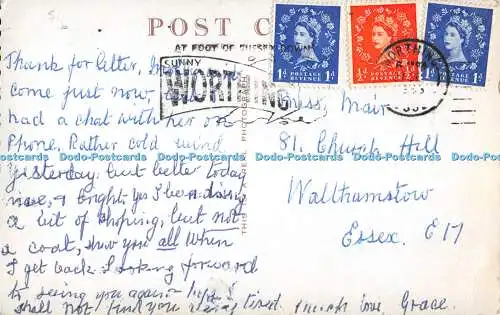 POST C
AT FOOT OF SUSSEX DOWNS
SUNNY
WORTHING
WORTHING
POSTAGE REVENUE
1D
POSTAGE REVENUE
½D
POSTAGE REVENUE
1D
THIS IS A
PHOTOGRAPH
Thank for letter,
come just now,
had a chat with her on
Phone. Rather cold wind
yesterday, but better today
nice, & bright. Yes I been doing
a bit of shoping, but not
a coat, show you all when
I get back. Looking forward
to seeing you again
shall not find you tired. much love, Grace.
Miss. Mair
81. Church Hill
Walthamstow
Essex. E17
Dodo-Postcards Dodo-Postcards Dodo-Postcards Dodo-Postcards Dodo-Postcards